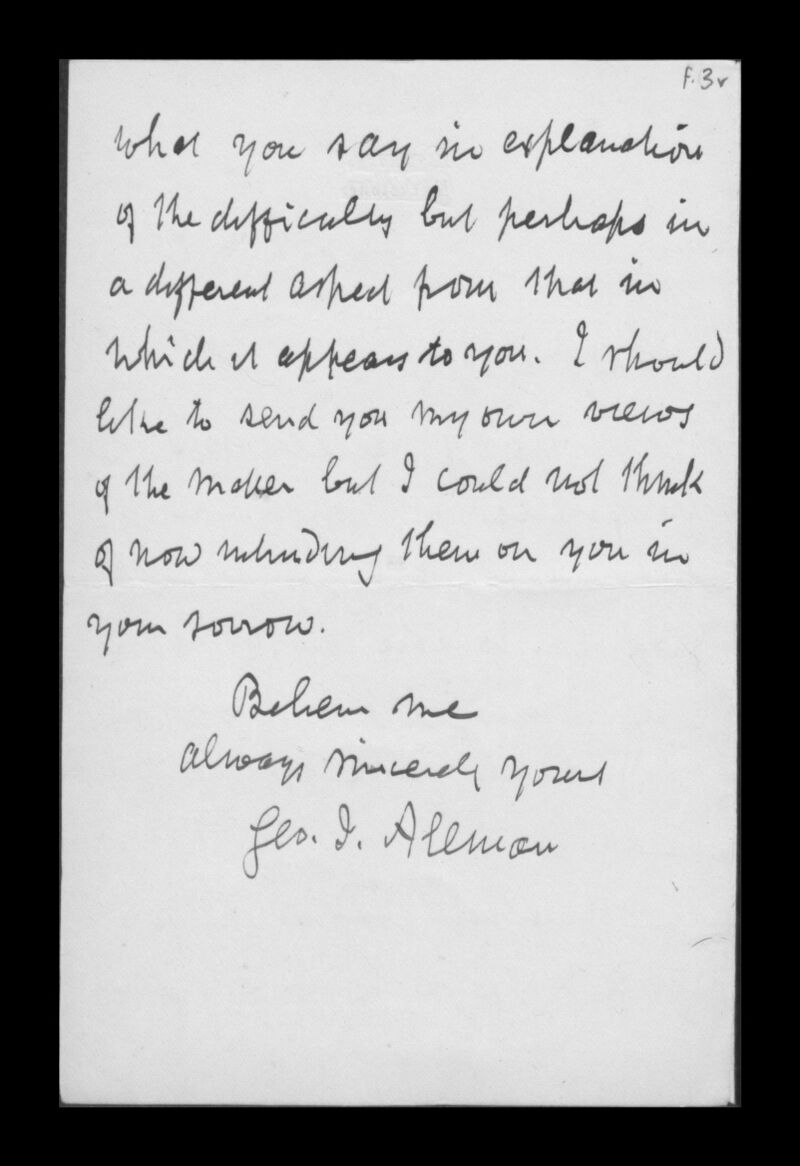 f.3v
what you say in explanation
of the difficulty but perhaps in
a different aspect from that in
which it appears to you. I should
like to send you my own views
of the matter but I could not think
of now intruding them on you in
your sorrow.
Believe me
always sincerely yours
Geo. J. Allman